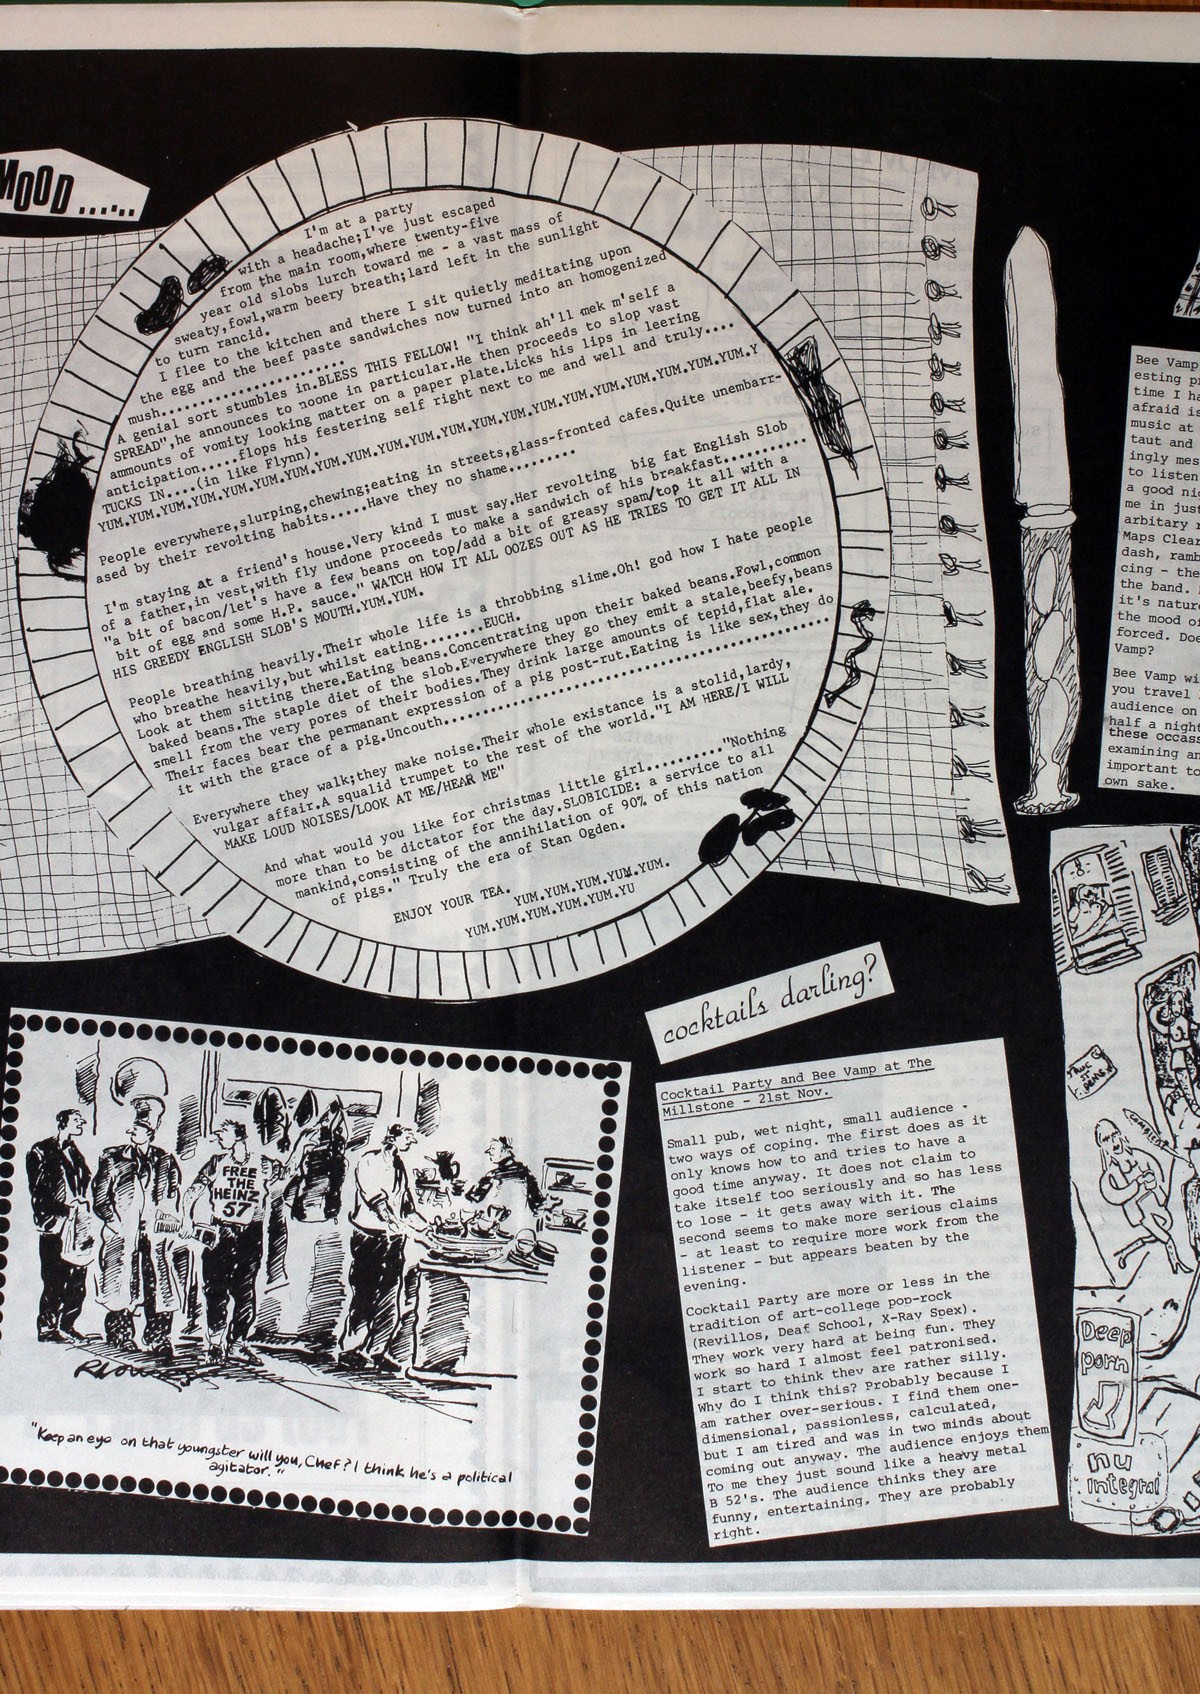 MOOD......
I'm at a party
with a headache;I've just escaped
from the main room,where twenty-five
year old slobs lurch toward me - a vast mass of
sweaty,fowl,warm beery breath;lard left in the sunlight
to turn rancid.
I flee to the kitchen and there I sit quietly meditating upon
the egg and the beef paste sandwiches now turned into an homogenized
mush......................
A genial sort stumbles in.BLESS THIS FELLOW! "I think ah'll mek m'self a
SPREAD",he announces to noone in particular.He then proceeds to slop vast
ammounts of vomity looking matter on a paper plate.Licks his lips in leering
anticipation.....flops his festering self right next to me and well and truly....
TUCKS IN....(in like Flynn).
YUM.YUM.YUM.YUM.YUM.YUM.YUM.YUM.YUM.YUM.YUM.YUM.YUM.YUM.YUM.YUM.YUM.YUM.Y
People everywhere,slurping,chewing;eating in streets,glass-fronted cafes.Quite unembarr-
ased by their revolting habits.....Have they no shame.........
I'm staying at a friend's house.Very kind I must say.Her revolting big fat English Slob
of a father,in vest,with fly undone proceeds to make a sandwich of his breakfast..........
"a bit of bacon/let's have a few beans on top/add a bit of greasy spam/top it all with a
bit of egg and some H.P. sauce." WATCH HOW IT ALL OOZES OUT AS HE TRIES TO GET IT ALL IN
HIS GREEDY ENGLISH SLOB'S MOUTH.YUM.YUM.
People breathing heavily.Their whole life is a throbbing slime.Oh! god how I hate people
who breathe heavily,but whilst eating........EUCH.
Look at them sitting there.Eating beans.Concentrating upon their baked beans.Fowl,common
baked beans.The staple diet of the slob.Everywhere they go they emit a stale,beefy,beans
smell from the very pores of their bodies.They drink large amounts of tepid,flat ale.
Their faces bear the permanant expression of a pig post-rut.Eating is like sex,they do
it with the grace of a pig.Uncouth..............................................
Everywhere they walk;they make noise.Their whole existance is a stolid,lardy,
vulgar affair.A squalid trumpet to the rest of the world."I AM HERE/I WILL
MAKE LOUD NOISES/LOOK AT ME/HEAR ME"
And what would you like for christmas little girl........"Nothing
more than to be dictator for the day.SLOBICIDE: a service to all
mankind,consisting of the annihilation of 90% of this nation
of pigs." Truly the era of Stan Ogden.
ENJOY YOUR TEA.
YUM.YUM.YUM.YUM.YUM.
YUM.YUM.YUM.YUM.YUM.YU
FREE
THE
HEINZ
57
"Keep an eye on that youngster will you, Chef? I think he's a political
agitator."
cocktails darling?
Cocktail Party and Bee Vamp at The
Millstone - 21st Nov.
Small pub, wet night, small audience -
two ways of coping. The first does as it
only knows how to and tries to have a
good time anyway. It does not claim to
take itself too seriously and so has less
to lose - it gets away with it. The
second seems to make more serious claims
- at least to require more work from the
listener - but appears beaten by the
evening.
Cocktail Party are more or less in the
tradition of art-college pop-rock
(Revillos, Deaf School, X-Ray Spex).
They work very hard at being fun. They
work so hard I almost feel patronised.
I start to think they are rather silly.
Why do I think this? Probably because I
am rather over-serious. I find them one-
dimensional, passionless, calculated,
but I am tired and was in two minds about
coming out anyway. The audience enjoys them
To me they just sound like a heavy metal
B 52's. The audience thinks they are
funny, entertaining. They are probably
right.
Bee Vamp
esting p
time I ha
afraid is
music at
taut and
ingly mes
to listen
a good ni
me in just
arbitary r
Maps Clear
dash, ramb
cing - the
the band.
it's natur
the mood of
forced. Doe
Vamp?
Bee Vamp wi
you travel
audience on
half a night
these occass
examining an
important to
own sake.
Deep
porn
nu
integral